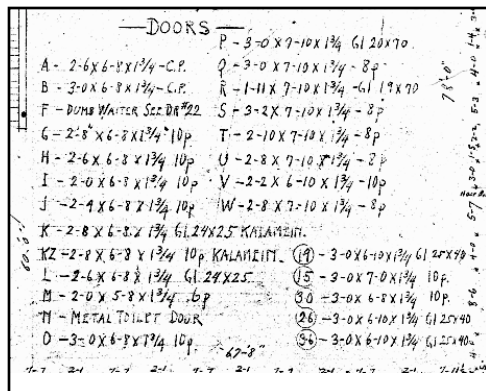 DOORS
A - 2-6 X 6-8 X 1¾ - C.P.
B - 3-0 X 6-8 X 1¾ - C.P.
F - DUMB WAITER SEE DR #22
G - 2-8" X 6-8 X 1¾" 10p
H - 2-6 X 6-8 X 1¾ 10p
I - 2-0 X 6-8 X 1¾ 10p
J - 2-4 X 6-8 X 1¾ 10p
K - 2-8 X 6-8 X 1¾ Gl. 24X25 KALAMEIN.
KZ - 2-8 X 6-8 X 1¾ 10p KALAMEIN.
L - 2-6 X 6-8 X 1¾ Gl. 24X25.
M - 2-0 X 5-8 X 1¾ 6p
N - METAL TOILET DOOR
O - 3-0 X 6-8 X 1¾ 10p
P - 3-0 X 7-10 X 1¾ Gl 20X70
Q - 3-0 X 7-10 X 1¾ - 8p
R - 1-11 X 7-10 X 1¾ Gl 19X70
S - 3-2 X 7-10 X 1¾ - 8p
T - 2-10 X 7-10 X 1¾ - 8p
U - 2-8 X 7-10 X 1¾ - 8p
V - 2-2 X 6-10 X 1¾ - 10p
W - 2-8 X 7-10 X 1¾ - 8p
19 - 3-0 X 6-10 X 1¾ Gl 25X40
15 - 3-0 X 7-0 X 1¾ 10p.
30 - 3-0 X 6-8 X 1¾ 10p.
26 - 3-0 X 6-10 X 1¾ Gl 25X40
36 - 3-0 X 6-10 X 1¾ Gl 25X40
60'-0"
78'-0"
"67-8"